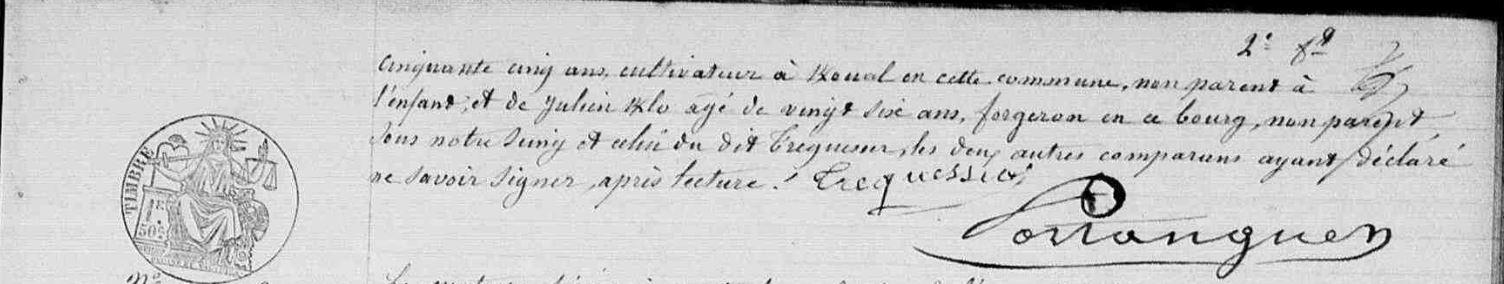 2e fo
cinquante cinq ans, cultivateur à Koual en cette commune, non parent à
l'enfant, et de Julien Klo agé de vingt six ans, forgeron en ce bourg, non parent,
sous notre seing et celui du dit Trequesser, les deux autres comparans ayant déclaré
ne savoir signer, après lecture. Trequesser
TIMBRE
50c
No